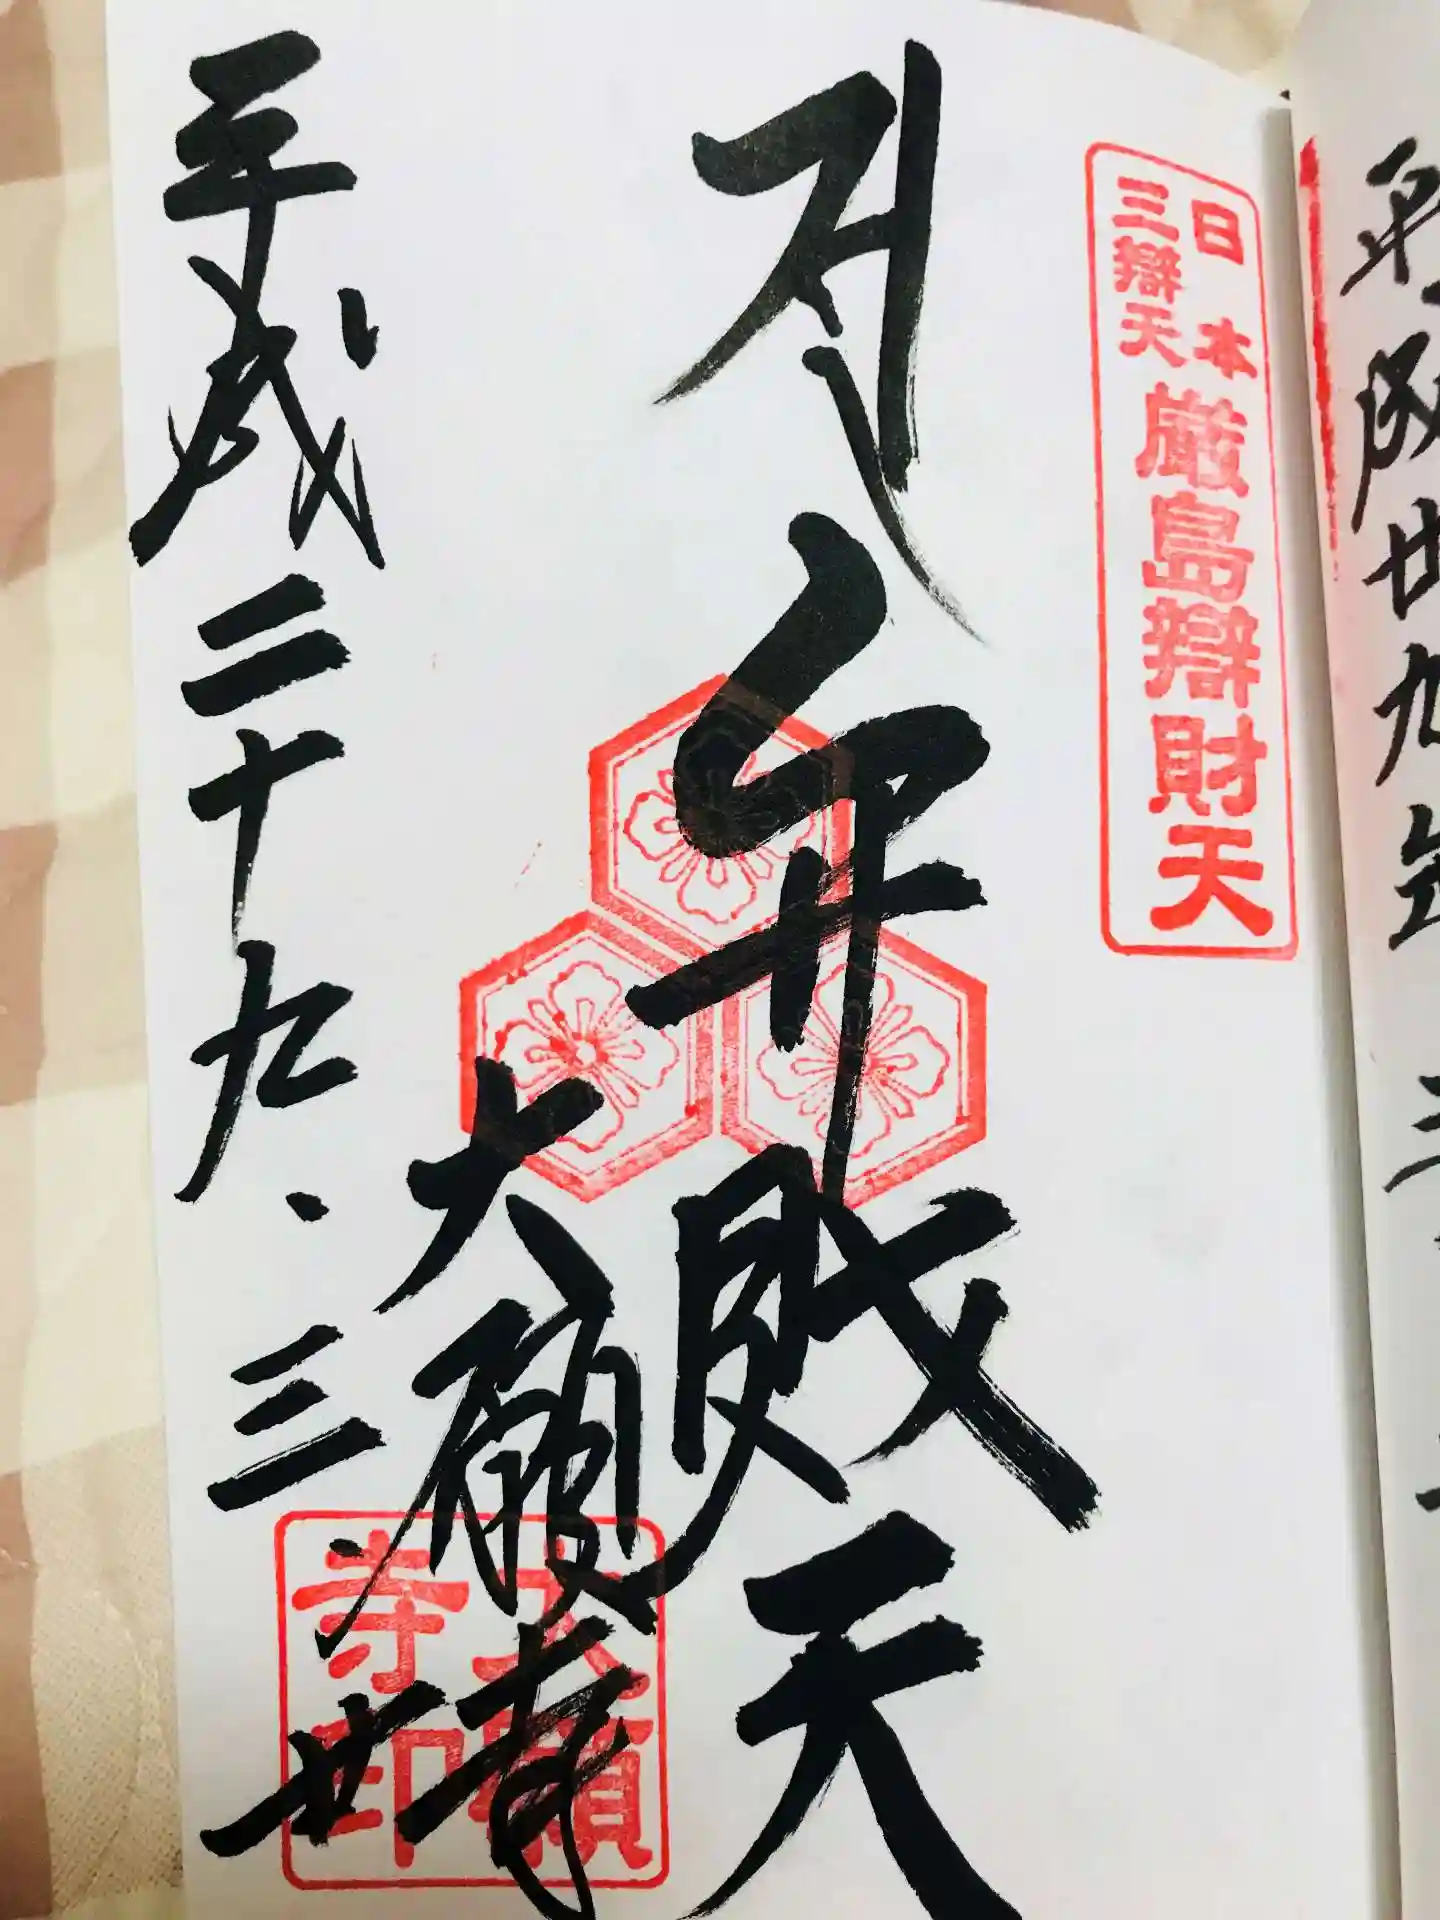 日本
三辯天
厳島辯財天
弁財天
大願寺
大願
寺印
平成二十九.三.廿